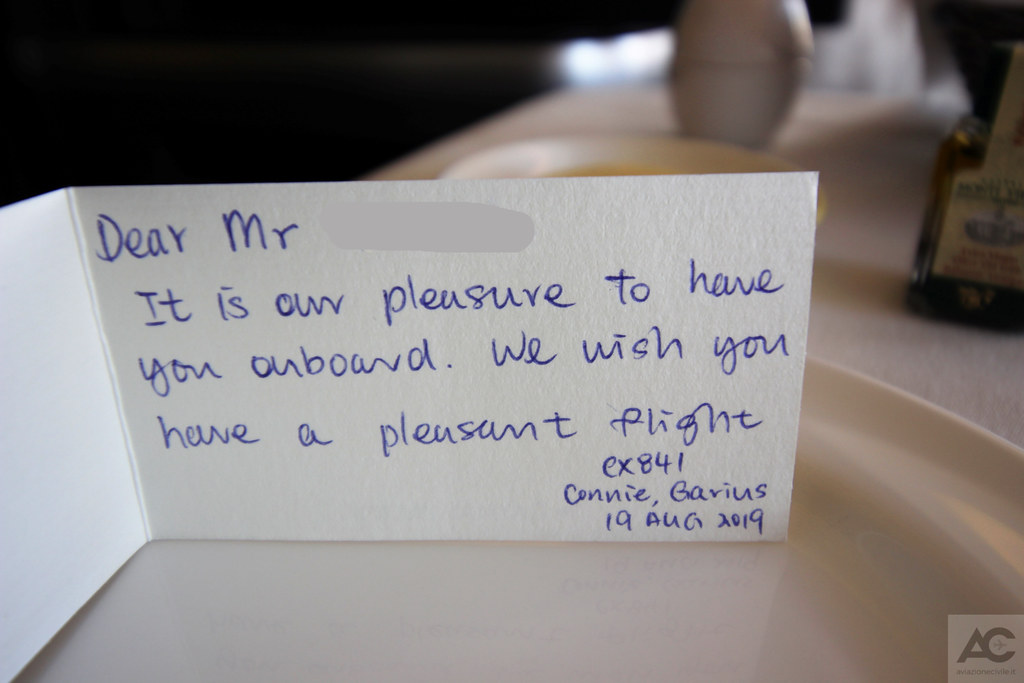 Dear Mr
It is our pleasure to have
you onboard. We wish you
have a pleasant flight
CX841
Connie, Garius
19 AUG 2019
AC
aviazionecivile.it